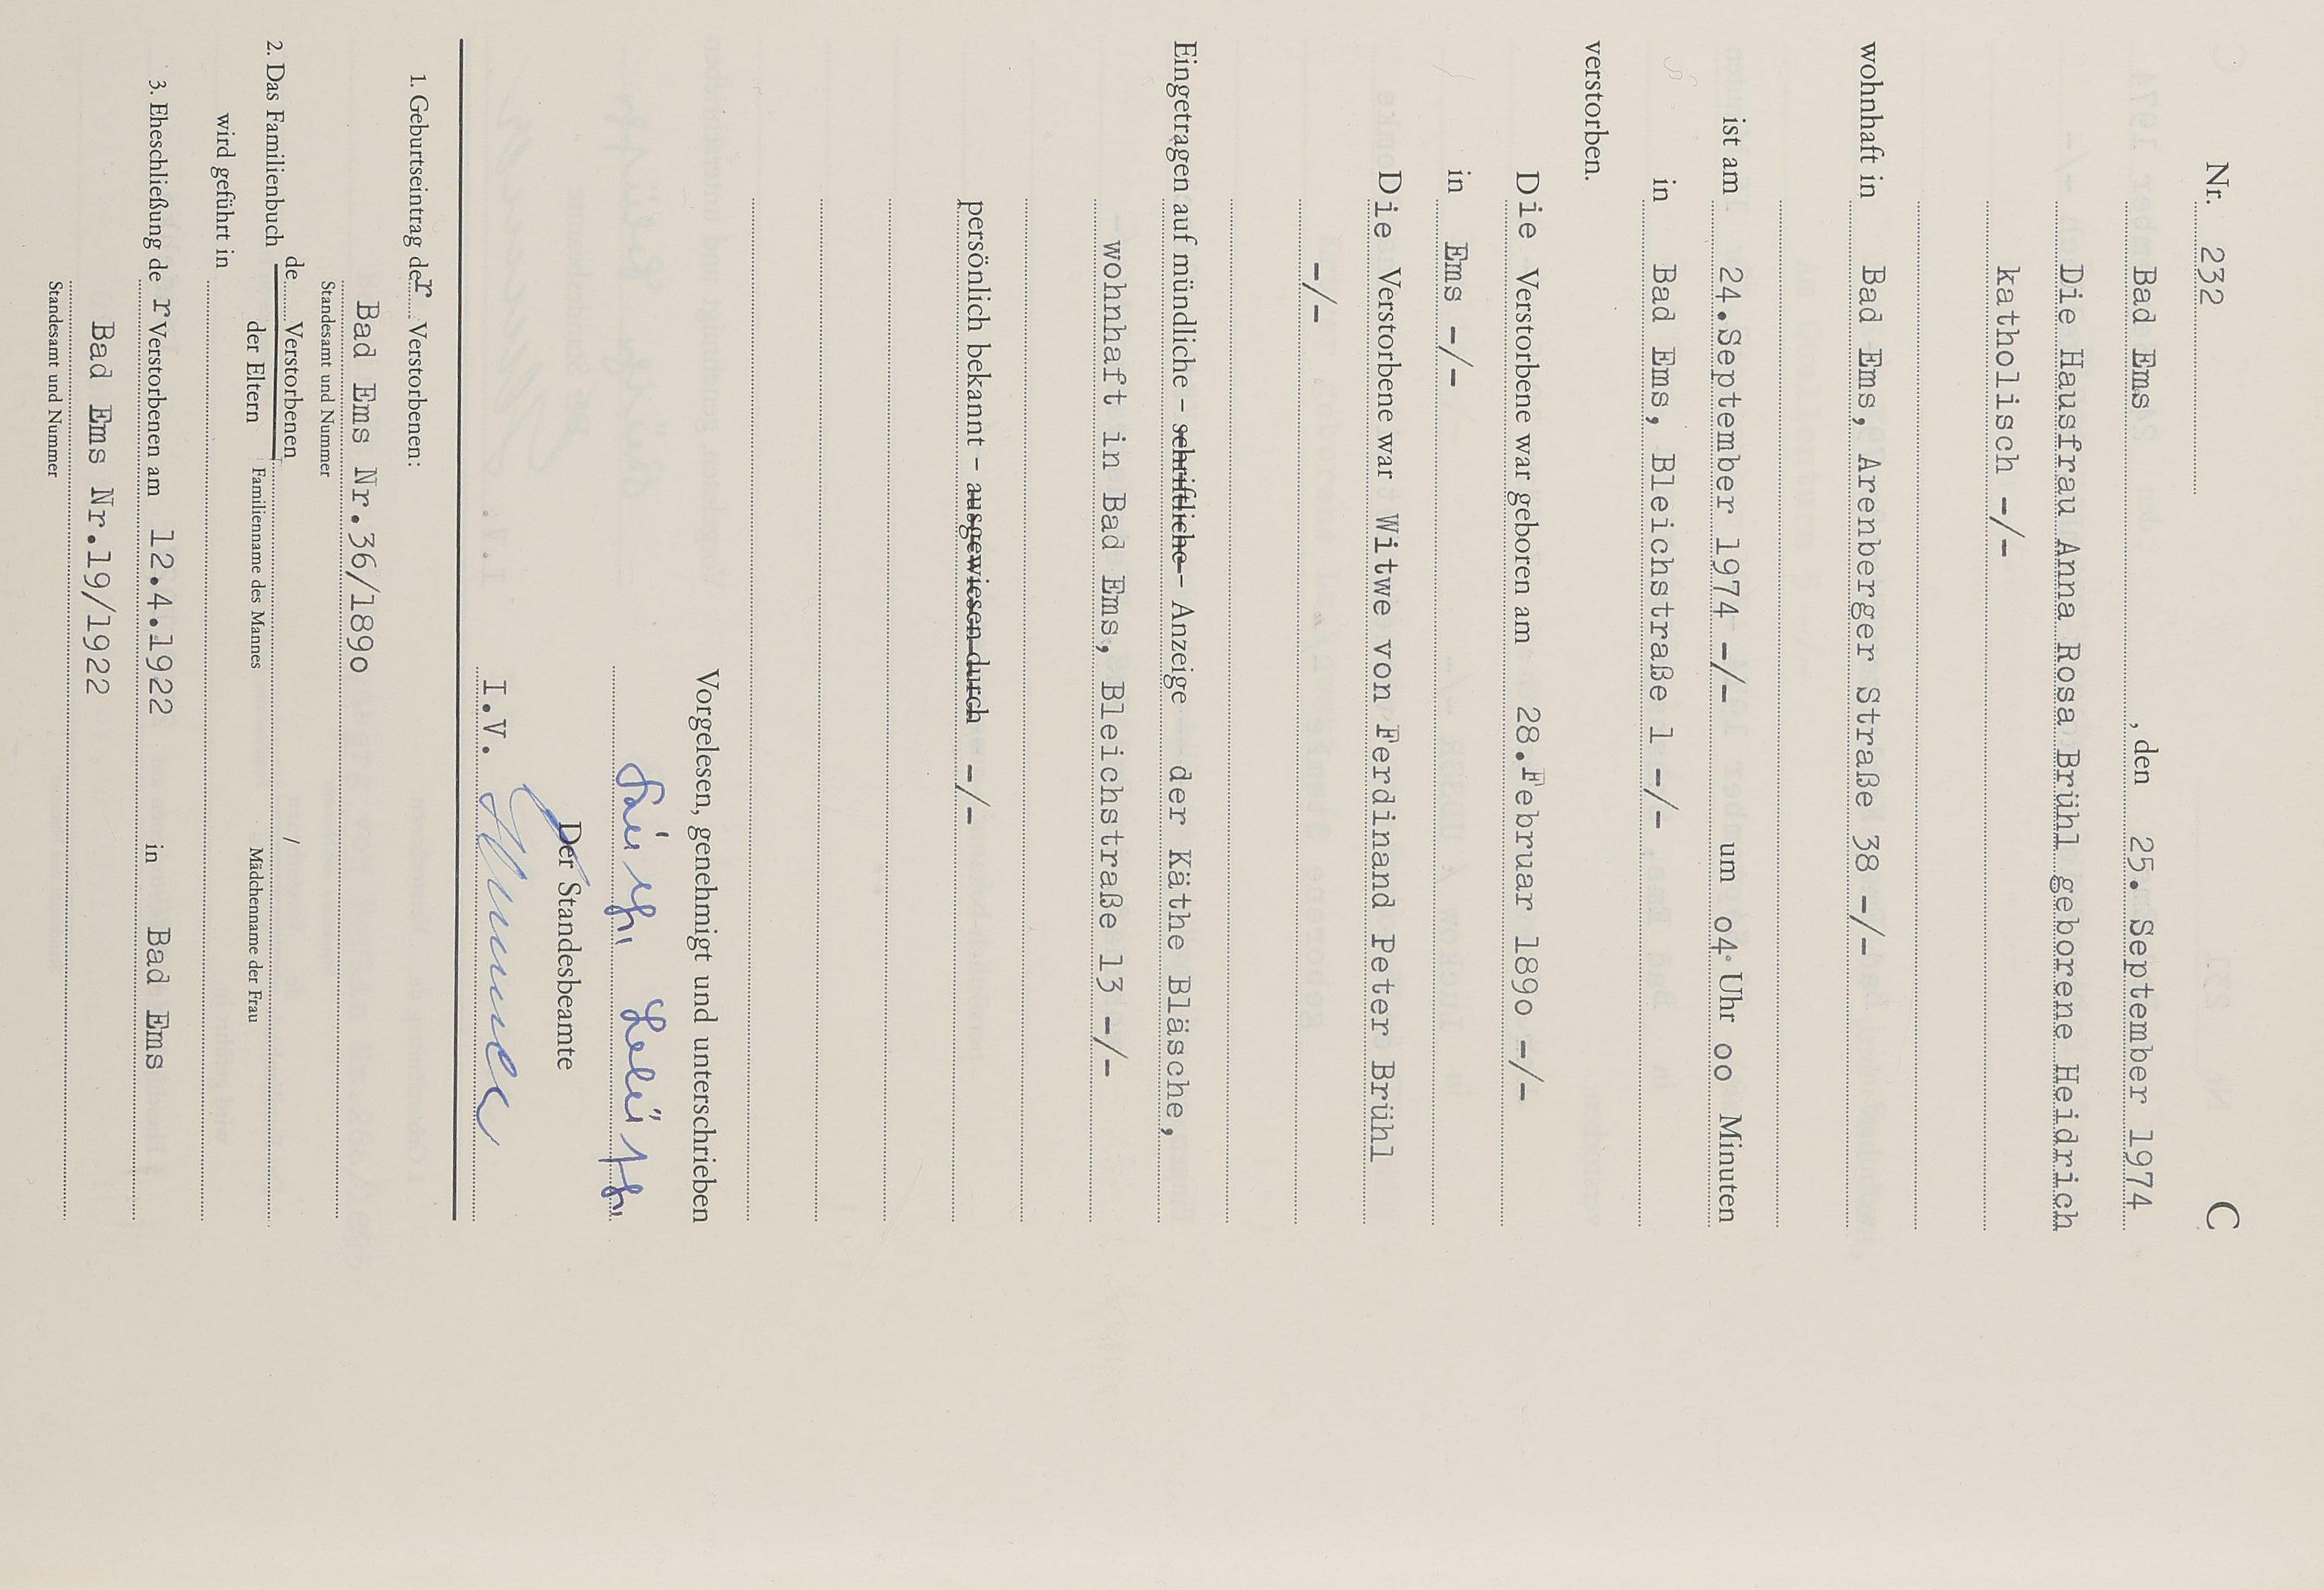 Nr. 232 C
Bad Ems , den 25. September 1974
Die Hausfrau Anna Rosa Brühl geborene Heidrich
katholisch -/-
wohnhaft in Bad Ems, Arenberger Straße 38 -/-
ist am 24.September 1974 -/- um o4 Uhr oo Minuten
in Bad Ems, Bleichstraße 1 -/-
verstorben.
Die Verstorbene war geboren am 28.Februar 189o -/-
in Ems -/-
Die Verstorbene war Witwe von Ferdinand Peter Brühl
-/-
Eingetragen auf mündliche - schriftliche - Anzeige der Käthe Bläsche,
wohnhaft in Bad Ems, Bleichstraße 13 -/-
persönlich bekannt - ausgewiesen durch -/-
Vorgelesen, genehmigt und unterschrieben
Der Standesbeamte
I.V.
1. Geburtseintrag der Verstorbenen:
Bad Ems Nr.36/189o
Standesamt und Nummer
2. Das Familienbuch de Verstorbenen /
der Eltern Familienname des Mannes Mädchenname der Frau
wird geführt in
3. Eheschließung der Verstorbenen am 12.4.1922 in Bad Ems
Bad Ems Nr.19/1922
Standesamt und Nummer